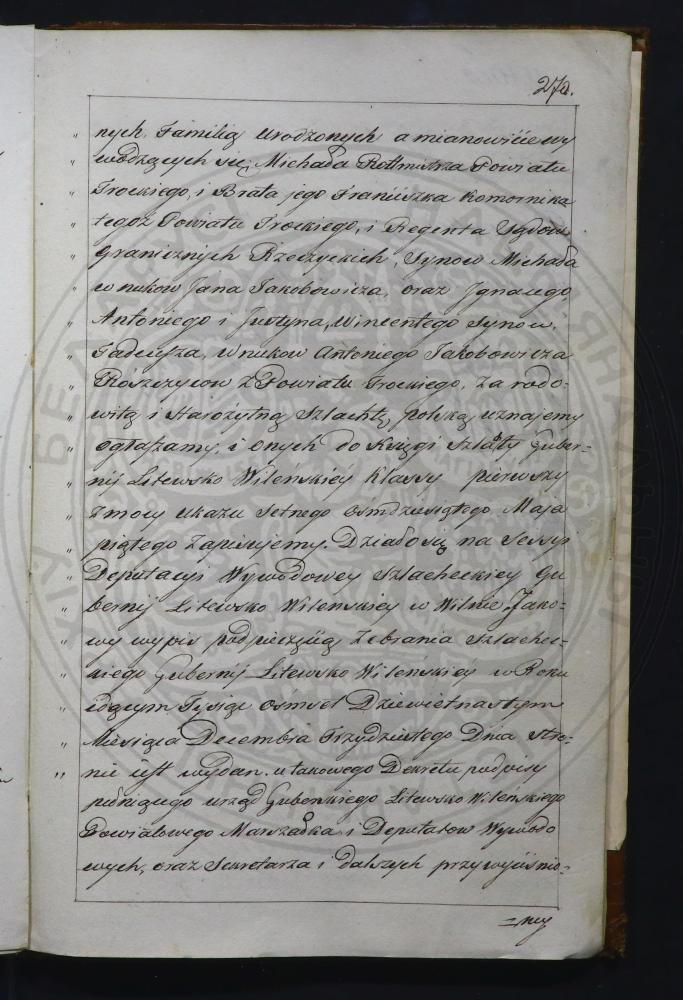 270.
nych Familią Urodzonych a mianowicie wy
wodzących się, Michała Rottmistrza Powiatu
Trockiego, i Brata jego Franciszka Komornika
tegoż Powiatu Trockiego, i Regenta Sądów
Granicznych Rzeczyckich, Synow Michała
wnukow Jana Jakobowicza, oraz Ignacego
Antoniego i Justyna, Wincentego Synow
Tadeusza, wnukow Antoniego Jakobowicza
z Powiatu Trockiego, za rodo-
witą i Starożytną Szlachtę polską uznajemy
ogłaszamy, i onych do Księgi Szlachty Guber-
nij Litewsko Wileńskiey Klassy pierwszy
z mocy ukazu Setnego ośmdziesiątego Maja
piątego zapisujemy. Działo się na Sessyi
Deputacyi Wywodowey Szlacheckiey Gu
bernij Litewsko Wileńskiey w Wilnie, Jako-
wy wypis pod pieczęcią Zebrania Szlachec-
kiego Gubernij Litewsko Wilenskiey w Roku
idącym Tysiąc ośmset Dziewietnastym
Miesiąca Decembra Trzydziestego Dnia stro-
nie jest wydan. u takowego Dekretu podpisy
Urząd Guberskiego Litewsko Wileńskiego
Powiatowego Marszałka i Deputatow Wywodo
wych, oraz Sekretarza i dalszych przy wyciśnio-
=ney
БЕЛАРУСІ